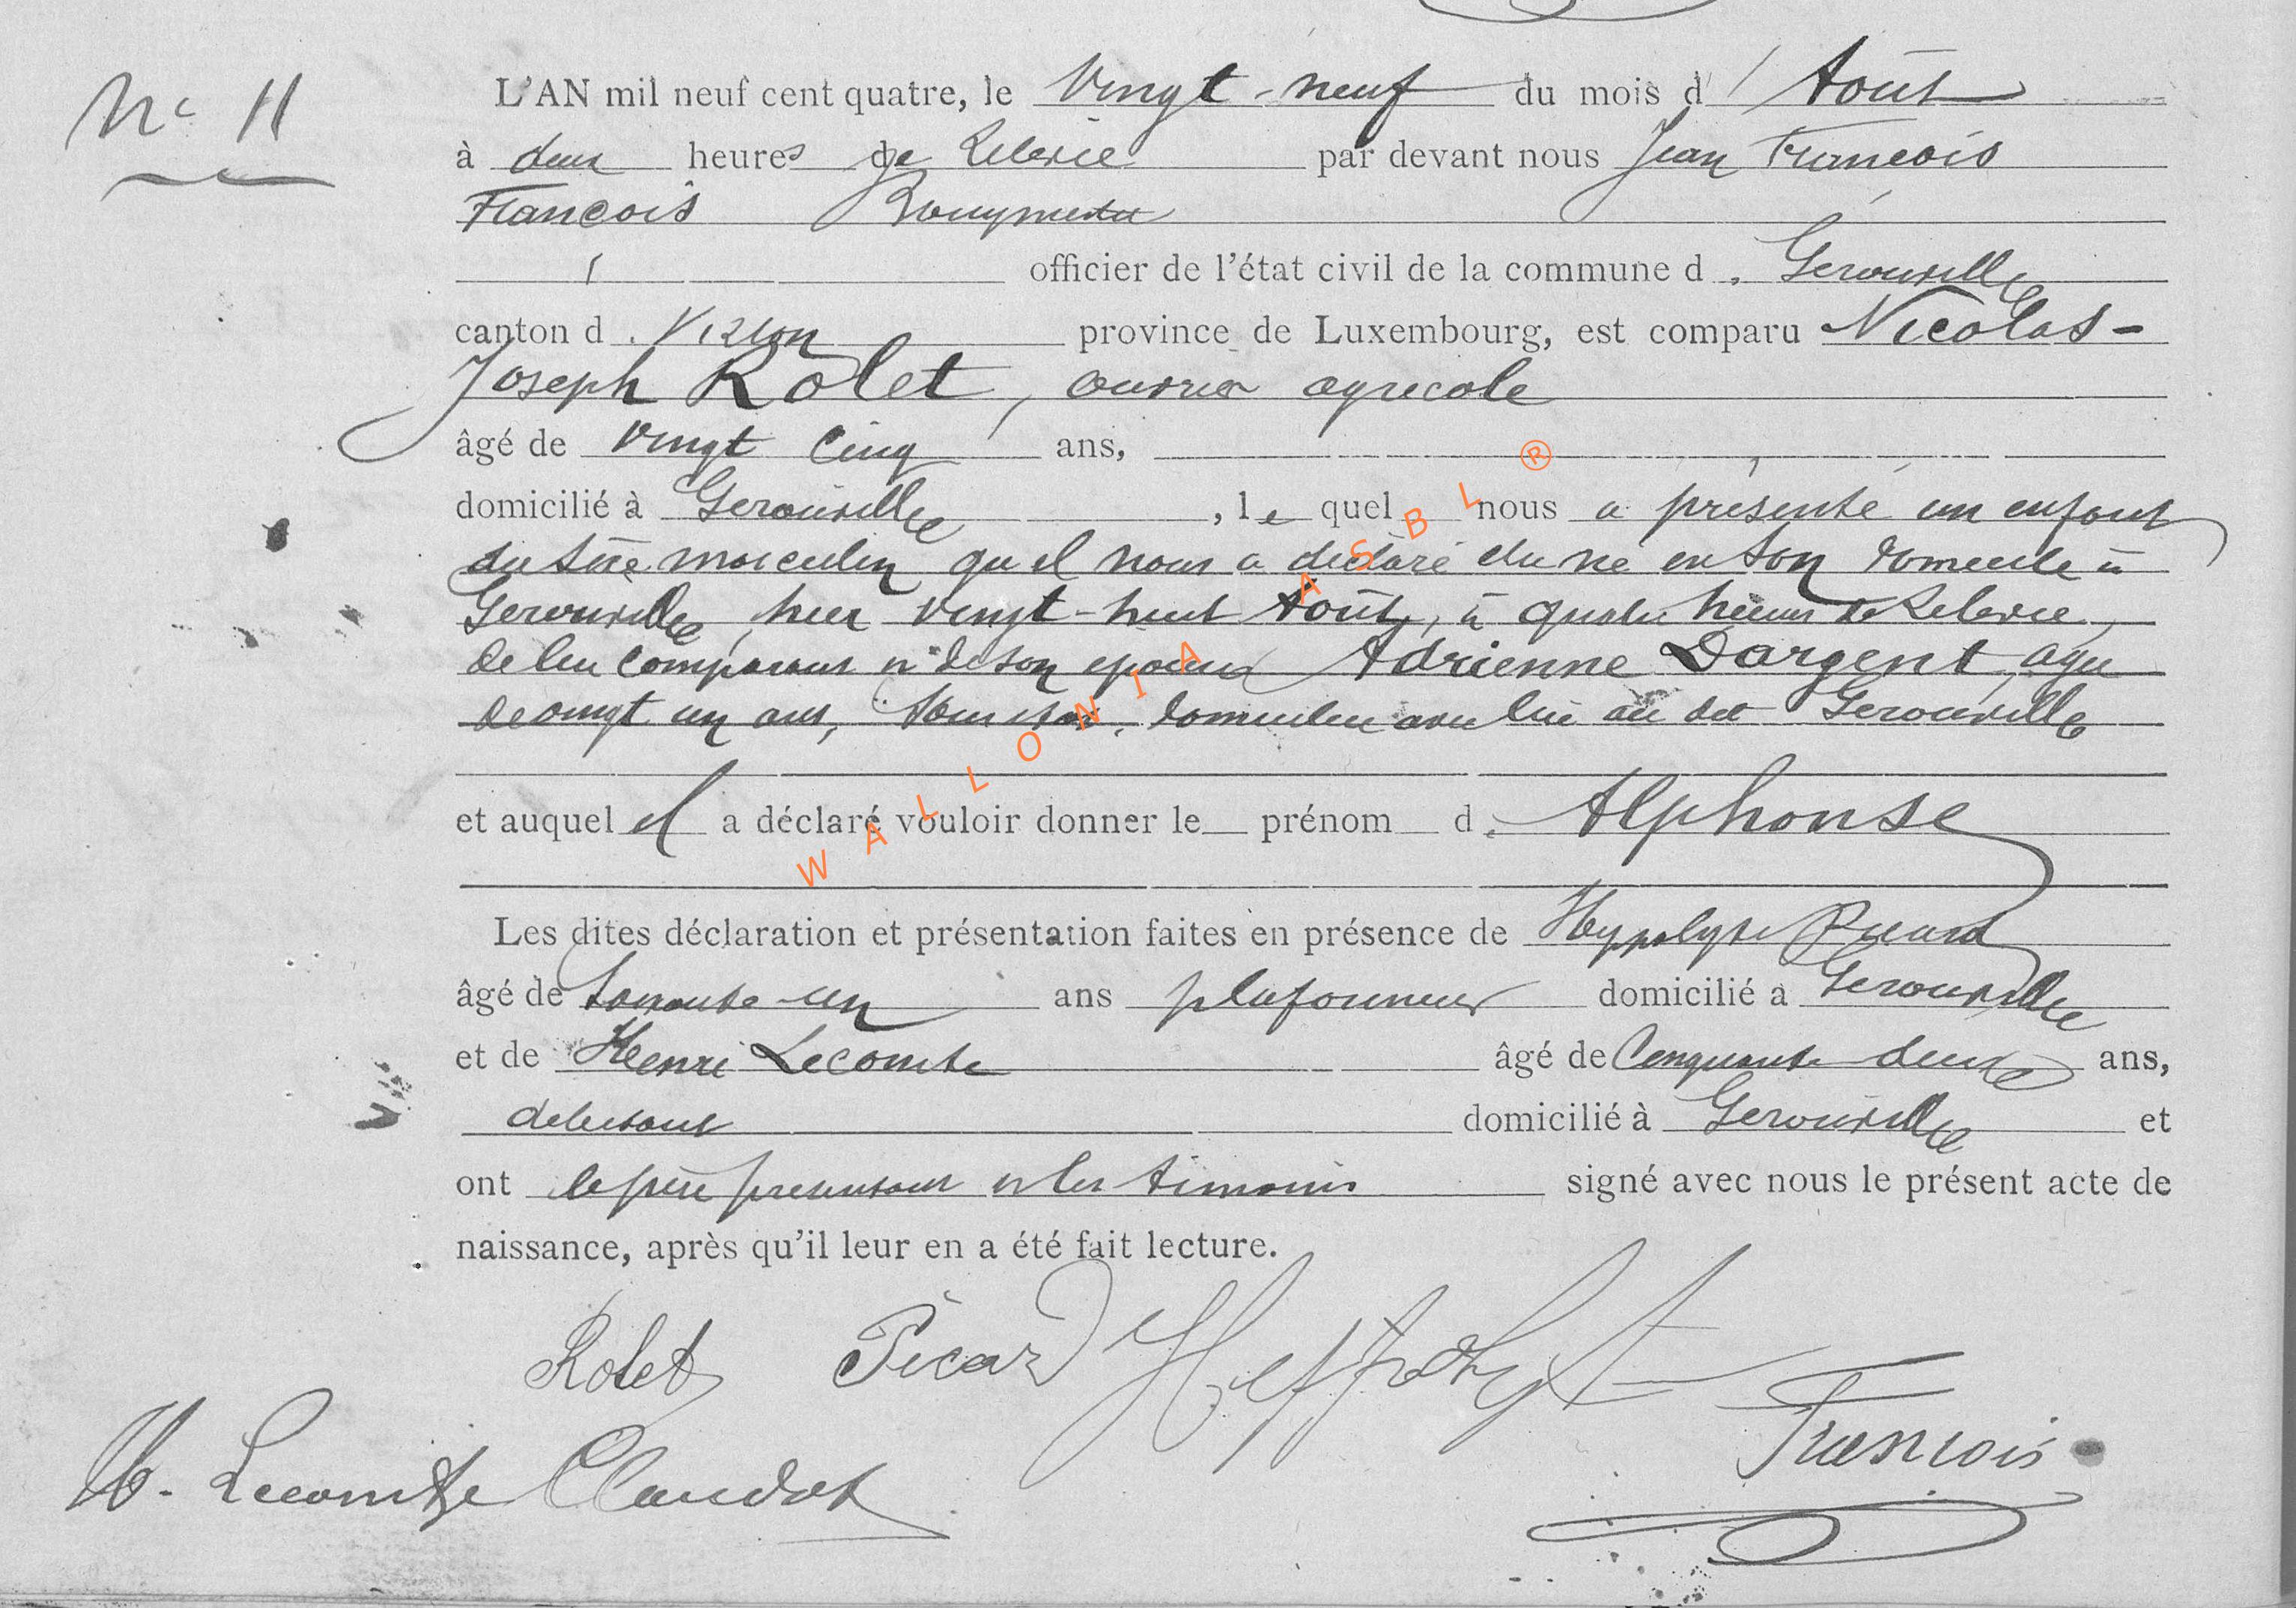 Nº 11
L'AN mil neuf cent quatre, le Vingt-neuf du mois d'Août
à deux heures de relevée par devant nous Jean François
François Bourgmestre
officier de l'état civil de la commune de Gerouville
canton de Virton province de Luxembourg, est comparu Nicolas-
Joseph Rolet, ouvrier agricole
âgé de vingt cinq ans,
domicilié à Gerouville, lequel nous a présenté un enfant
du sexe masculin qu'il nous a déclaré être né en son domicile à
Gerouville, hier vingt-huit Août, à quatre heures de relevée,
de lui comparant et de son épouse Adrienne Dargent, agée
de vingt un ans, domiciliée avec lui au dit Gerouville
et auquel il a déclaré vouloir donner le prénom d. Alphonse
Les dites déclaration et présentation faites en présence de Hyppolyte Picard
âgé de soixante-un ans plafonneur domicilié a Gerouville
et de Henri Lecomte âgé de Cinquante deux ans,
débitant domicilié à Gerouville et
ont le père présentant et les témoins signé avec nous le présent acte de
naissance, après qu'il leur en a été fait lecture.
Rolet Picard Hyppolyte
François
H. Lecomte Claudot
WALLONIA ASBL ®